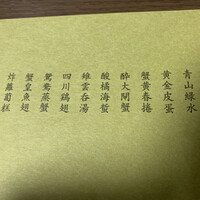 青山綠水
黃金皮蛋
蟹黃春捲
醉大閘蟹
酸橘海蜇
雉雲吞湯
四川鷄翅
鴛鴦蒸蟹
蟹皇魚翅
炸蘿蔔糕